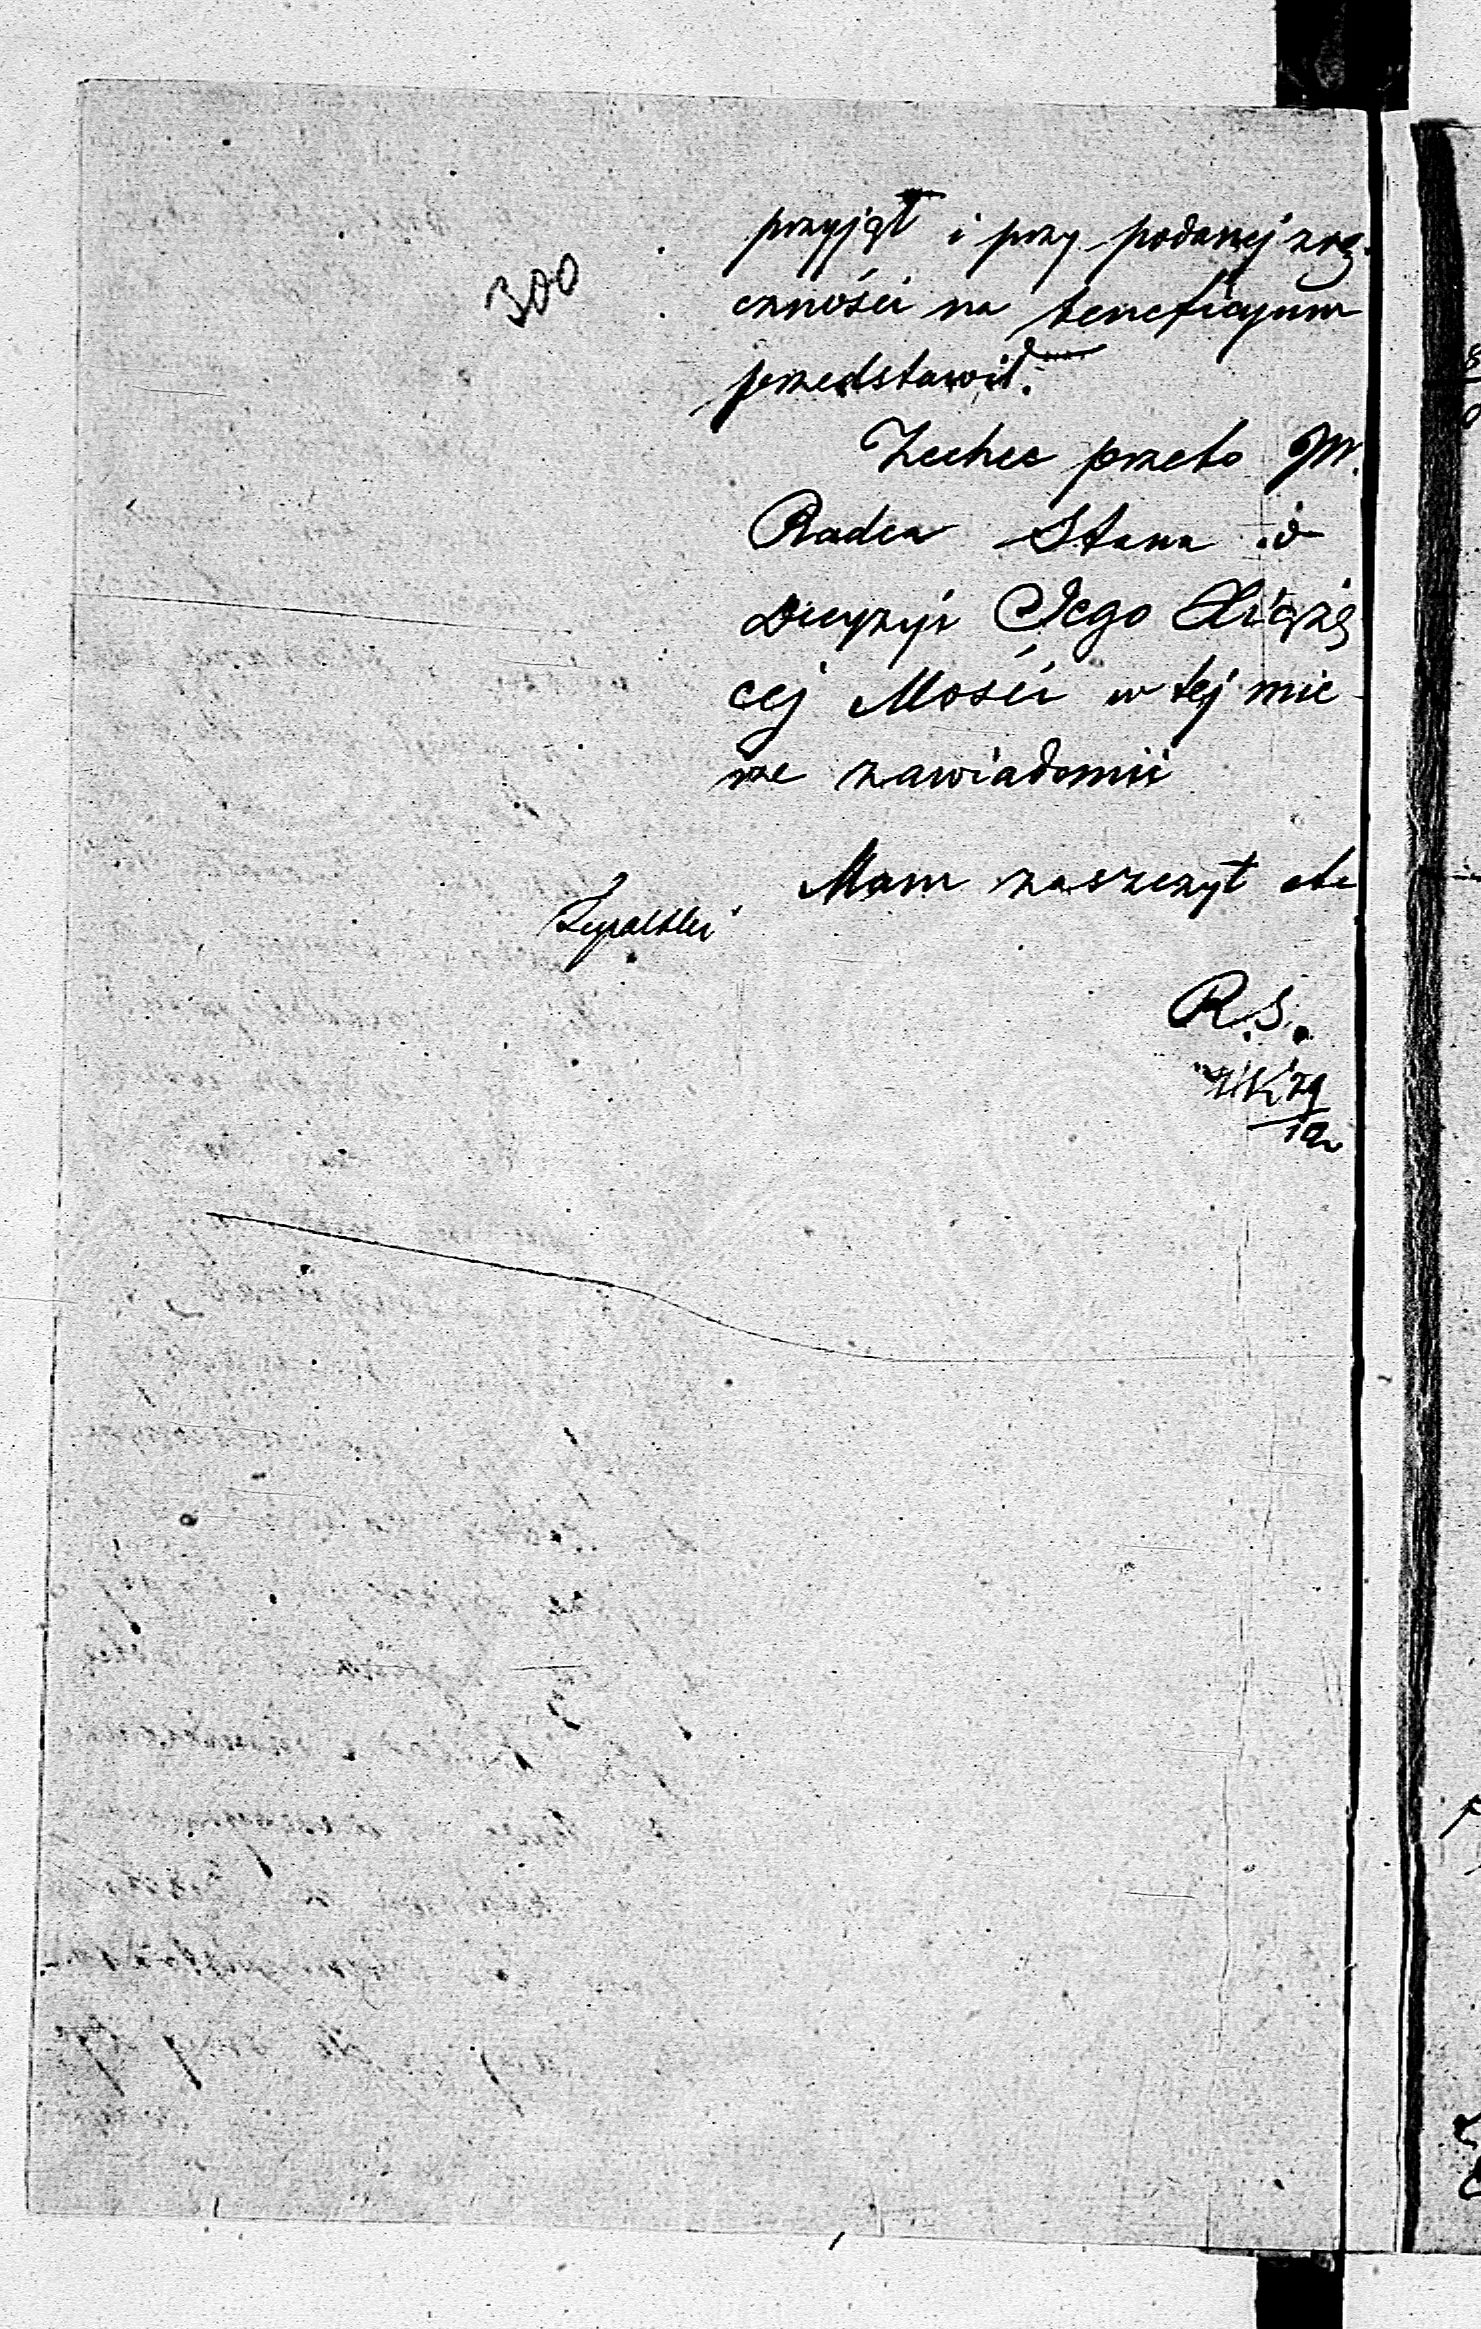 300
przyjął i przy podanej zrę-
czności na beneficyum
przedstawił.
Zechce przeto JW.
Radca Stanu o
Decyzyi Jego Xiążę
cej Mości w tej mie-
rze zawiadomić
Mam zaszczyt etc
R. S.